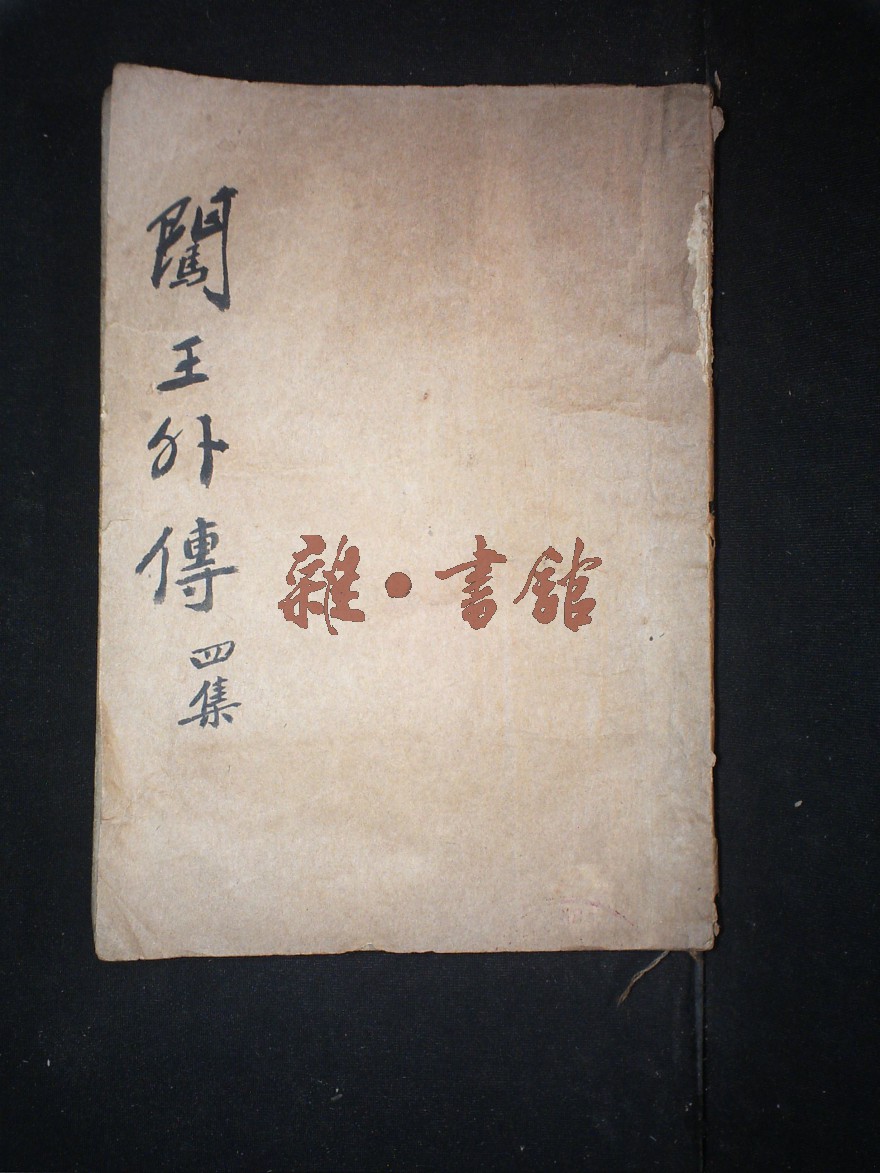 闖王外傳 四集
雜·書館